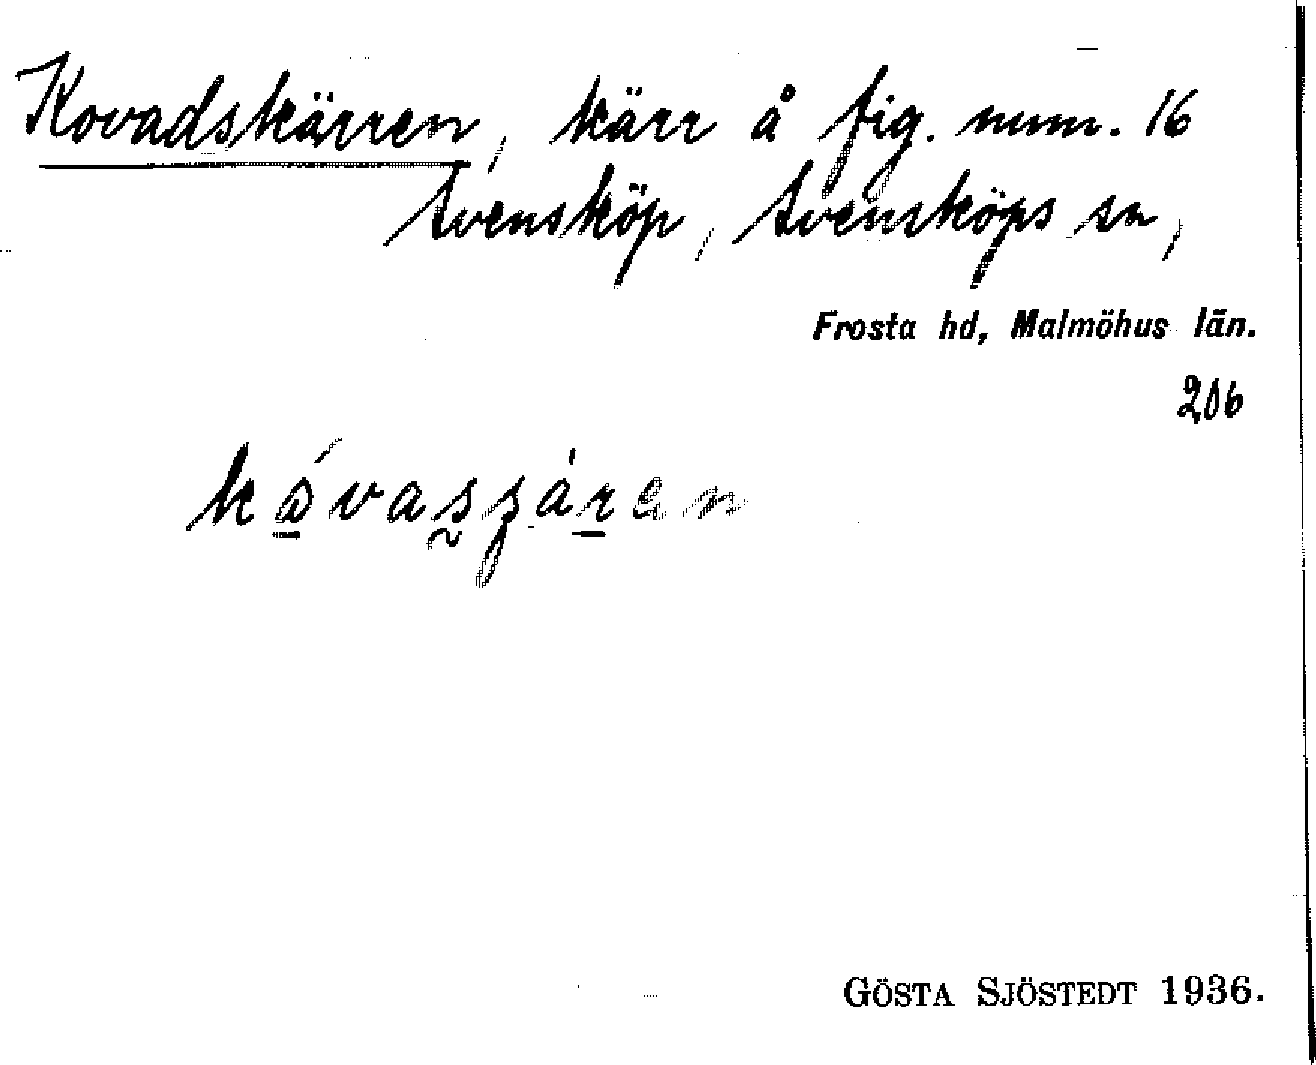 Kovadskärren, kärr å fig. num. 16
Svensköp, Svensköps sn,
Frosta hd, Malmöhus län.
206
GÖSTA SJÖSTEDT 1936.